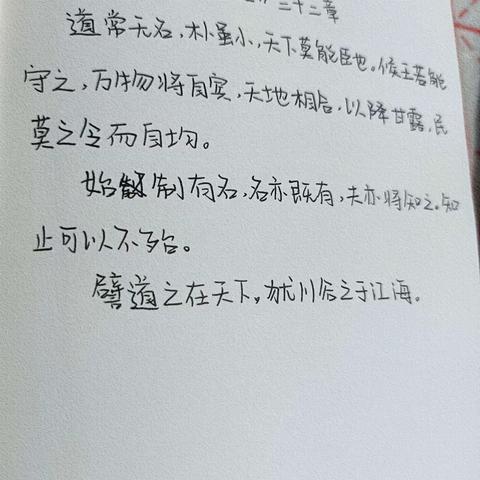 三十二章
道常无名，朴虽小，天下莫能臣也。侯王若能
守之，万物将自宾，天地相合，以降甘露，民
莫之令而自均。
始制有名，名亦既有，夫亦将知之。知
止可以不殆。
譬道之在天下，犹川谷之于江海。